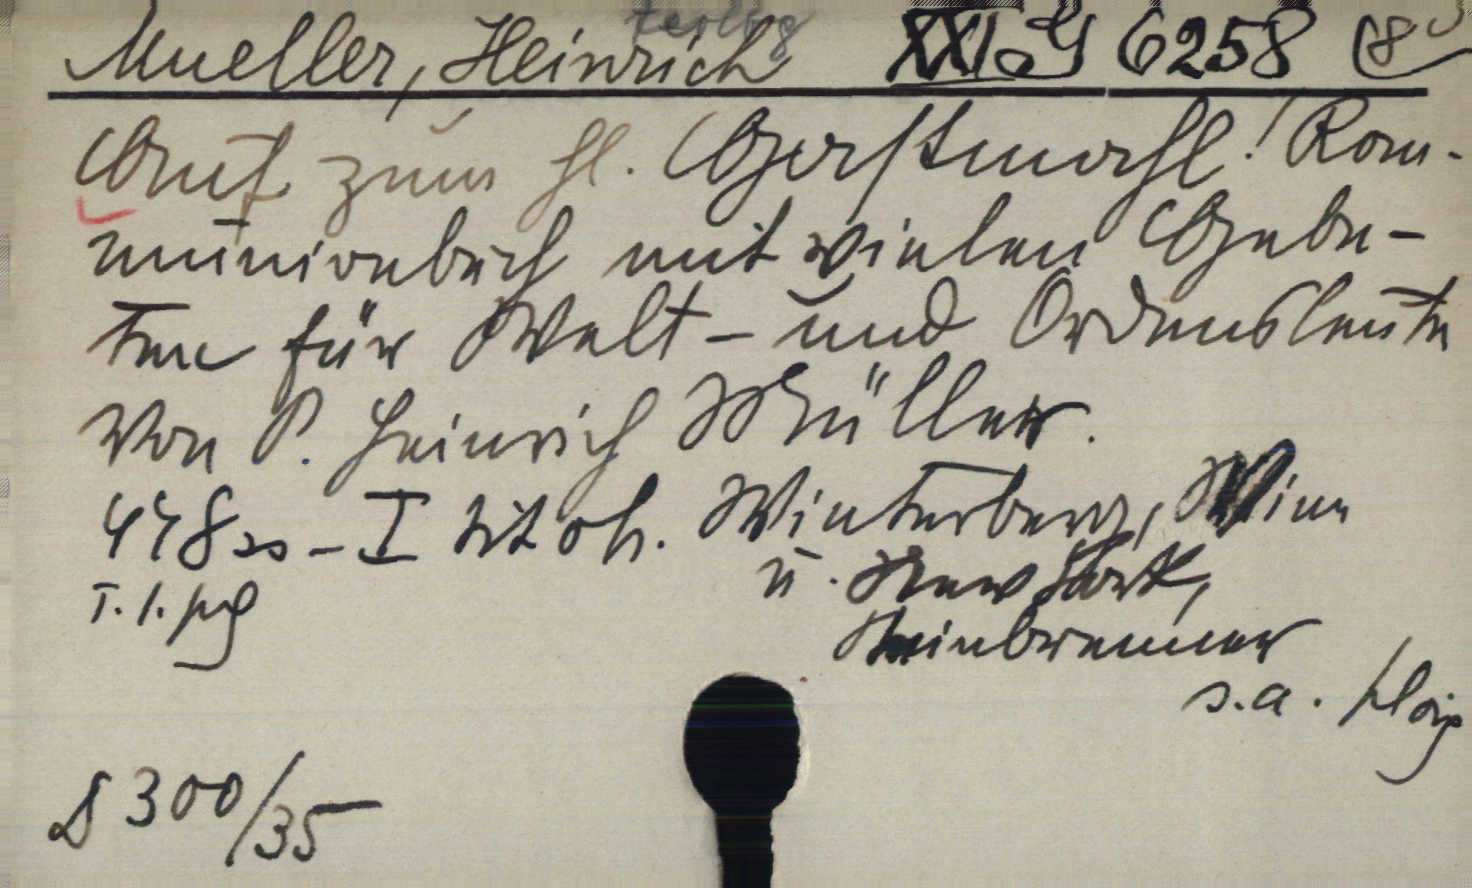 Mueller, Heinrich XXI. G 6258
Auf zum hl. Gastmahl! Kom-
munionbuch mit vielen Gebe-
ten für Welt- und Ordensleute
Von P. Heinrich Müller.
448 ss - I tit Winterberg, Wien
u. New York,
Steinbrenner
s.a.
S 300/35